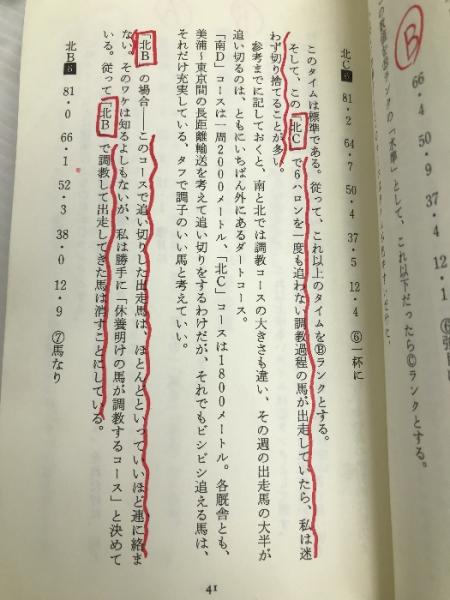 Ⓑ
66・4 50・9 37・4 12・1 ⑥強
これ以下だったらⒸランクとする。
北C⑥ 81・2 64・7 50・4 37・5 12・4 ⑥一杯に
このタイムは標準である。従って、これ以上のタイムをⒷランクとする。
そして、この北Cで6ハロンを一度も追わない調教過程の馬が出走していたら、私は迷
わず切り捨てることが多い。
参考までに記しておくと、南と北では調教コースの大きさも違い、その週の出走馬の大半が
追い切るのは、ともにいちばん外にあるダートコース。
「南D」コースは一周2000メートル、「北C」コースは1800メートル。各厩舎とも、
美浦〜東京間の長距離輸送を考えて追い切りをするわけだが、それでもビシビシ追える馬は、
それだけ充実している、タフで調子のいい馬と考えていい。
「北B」の場合――このコースで追い切りした出走馬は、ほとんどといっていいほど連に絡ま
ない。そのワケは知るよしもないが、私は勝手に「休養明けの馬が調教するコース」と決めて
いる。従って、北Bで調教して出走してきた馬は消すことにしている。
北B⑥ 81・0 66・1 52・3 38・0 12・9 ⑦馬なり
41